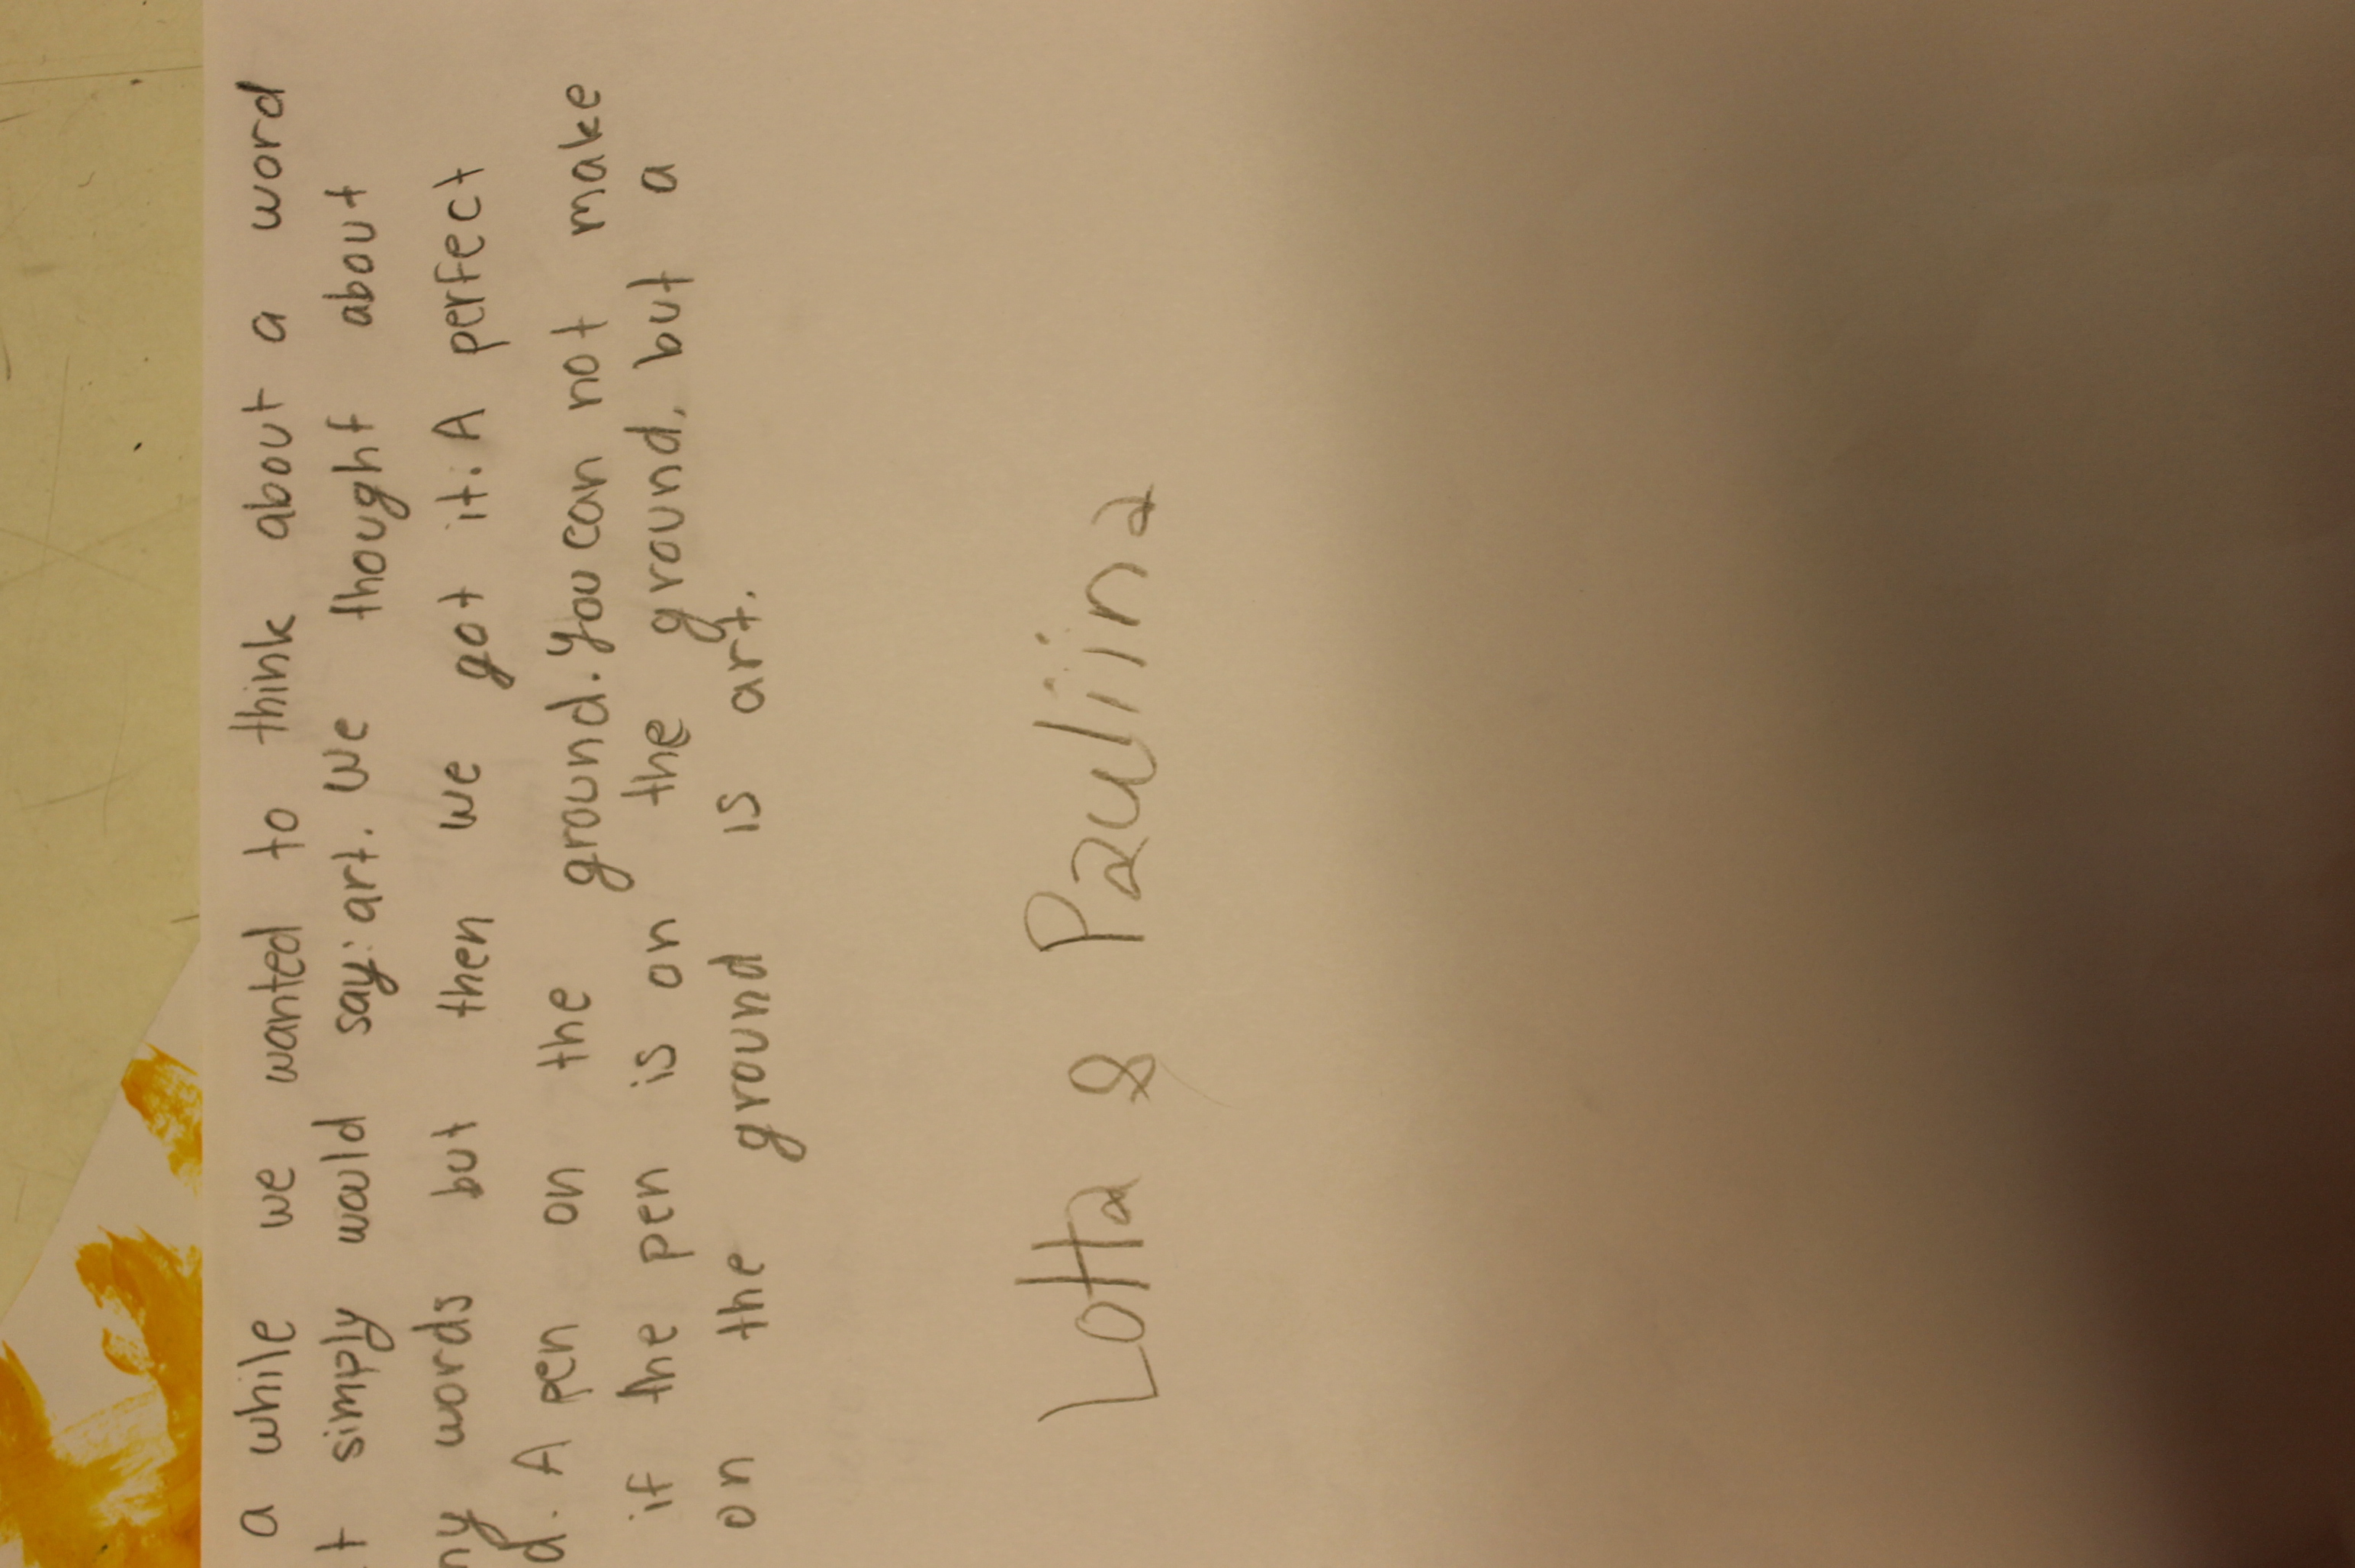 a while we wanted to think about a word
t simply would say: art. We thought about
ny words but then we got it: A perfect
d. A pen on the ground. You can not make
if the pen is on the ground, but a
on the ground is art.
Lotta & Pauliina